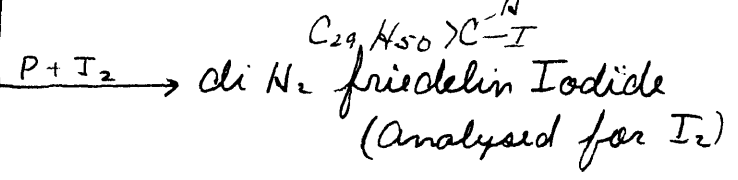 C₂₉H₅₀>C-H
-I
P + I₂ → di H₂ friedelin Iodide
(Analysed for I₂)